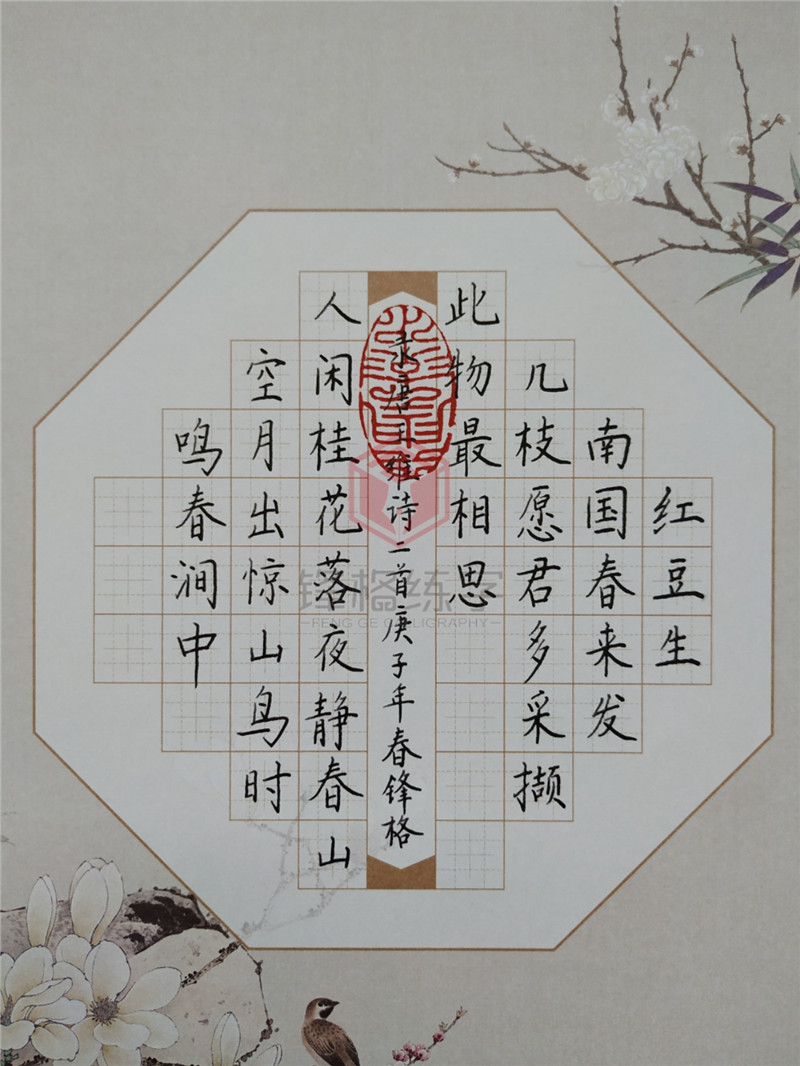 红豆生
南国春来发
几枝愿君多采撷
此物最相思
录唐王维诗二首庚子年春锋格
人闲桂花落夜静春山
空月出惊山鸟时
鸣春涧中
锋格练字
FENG GE CALLIGRAPHY